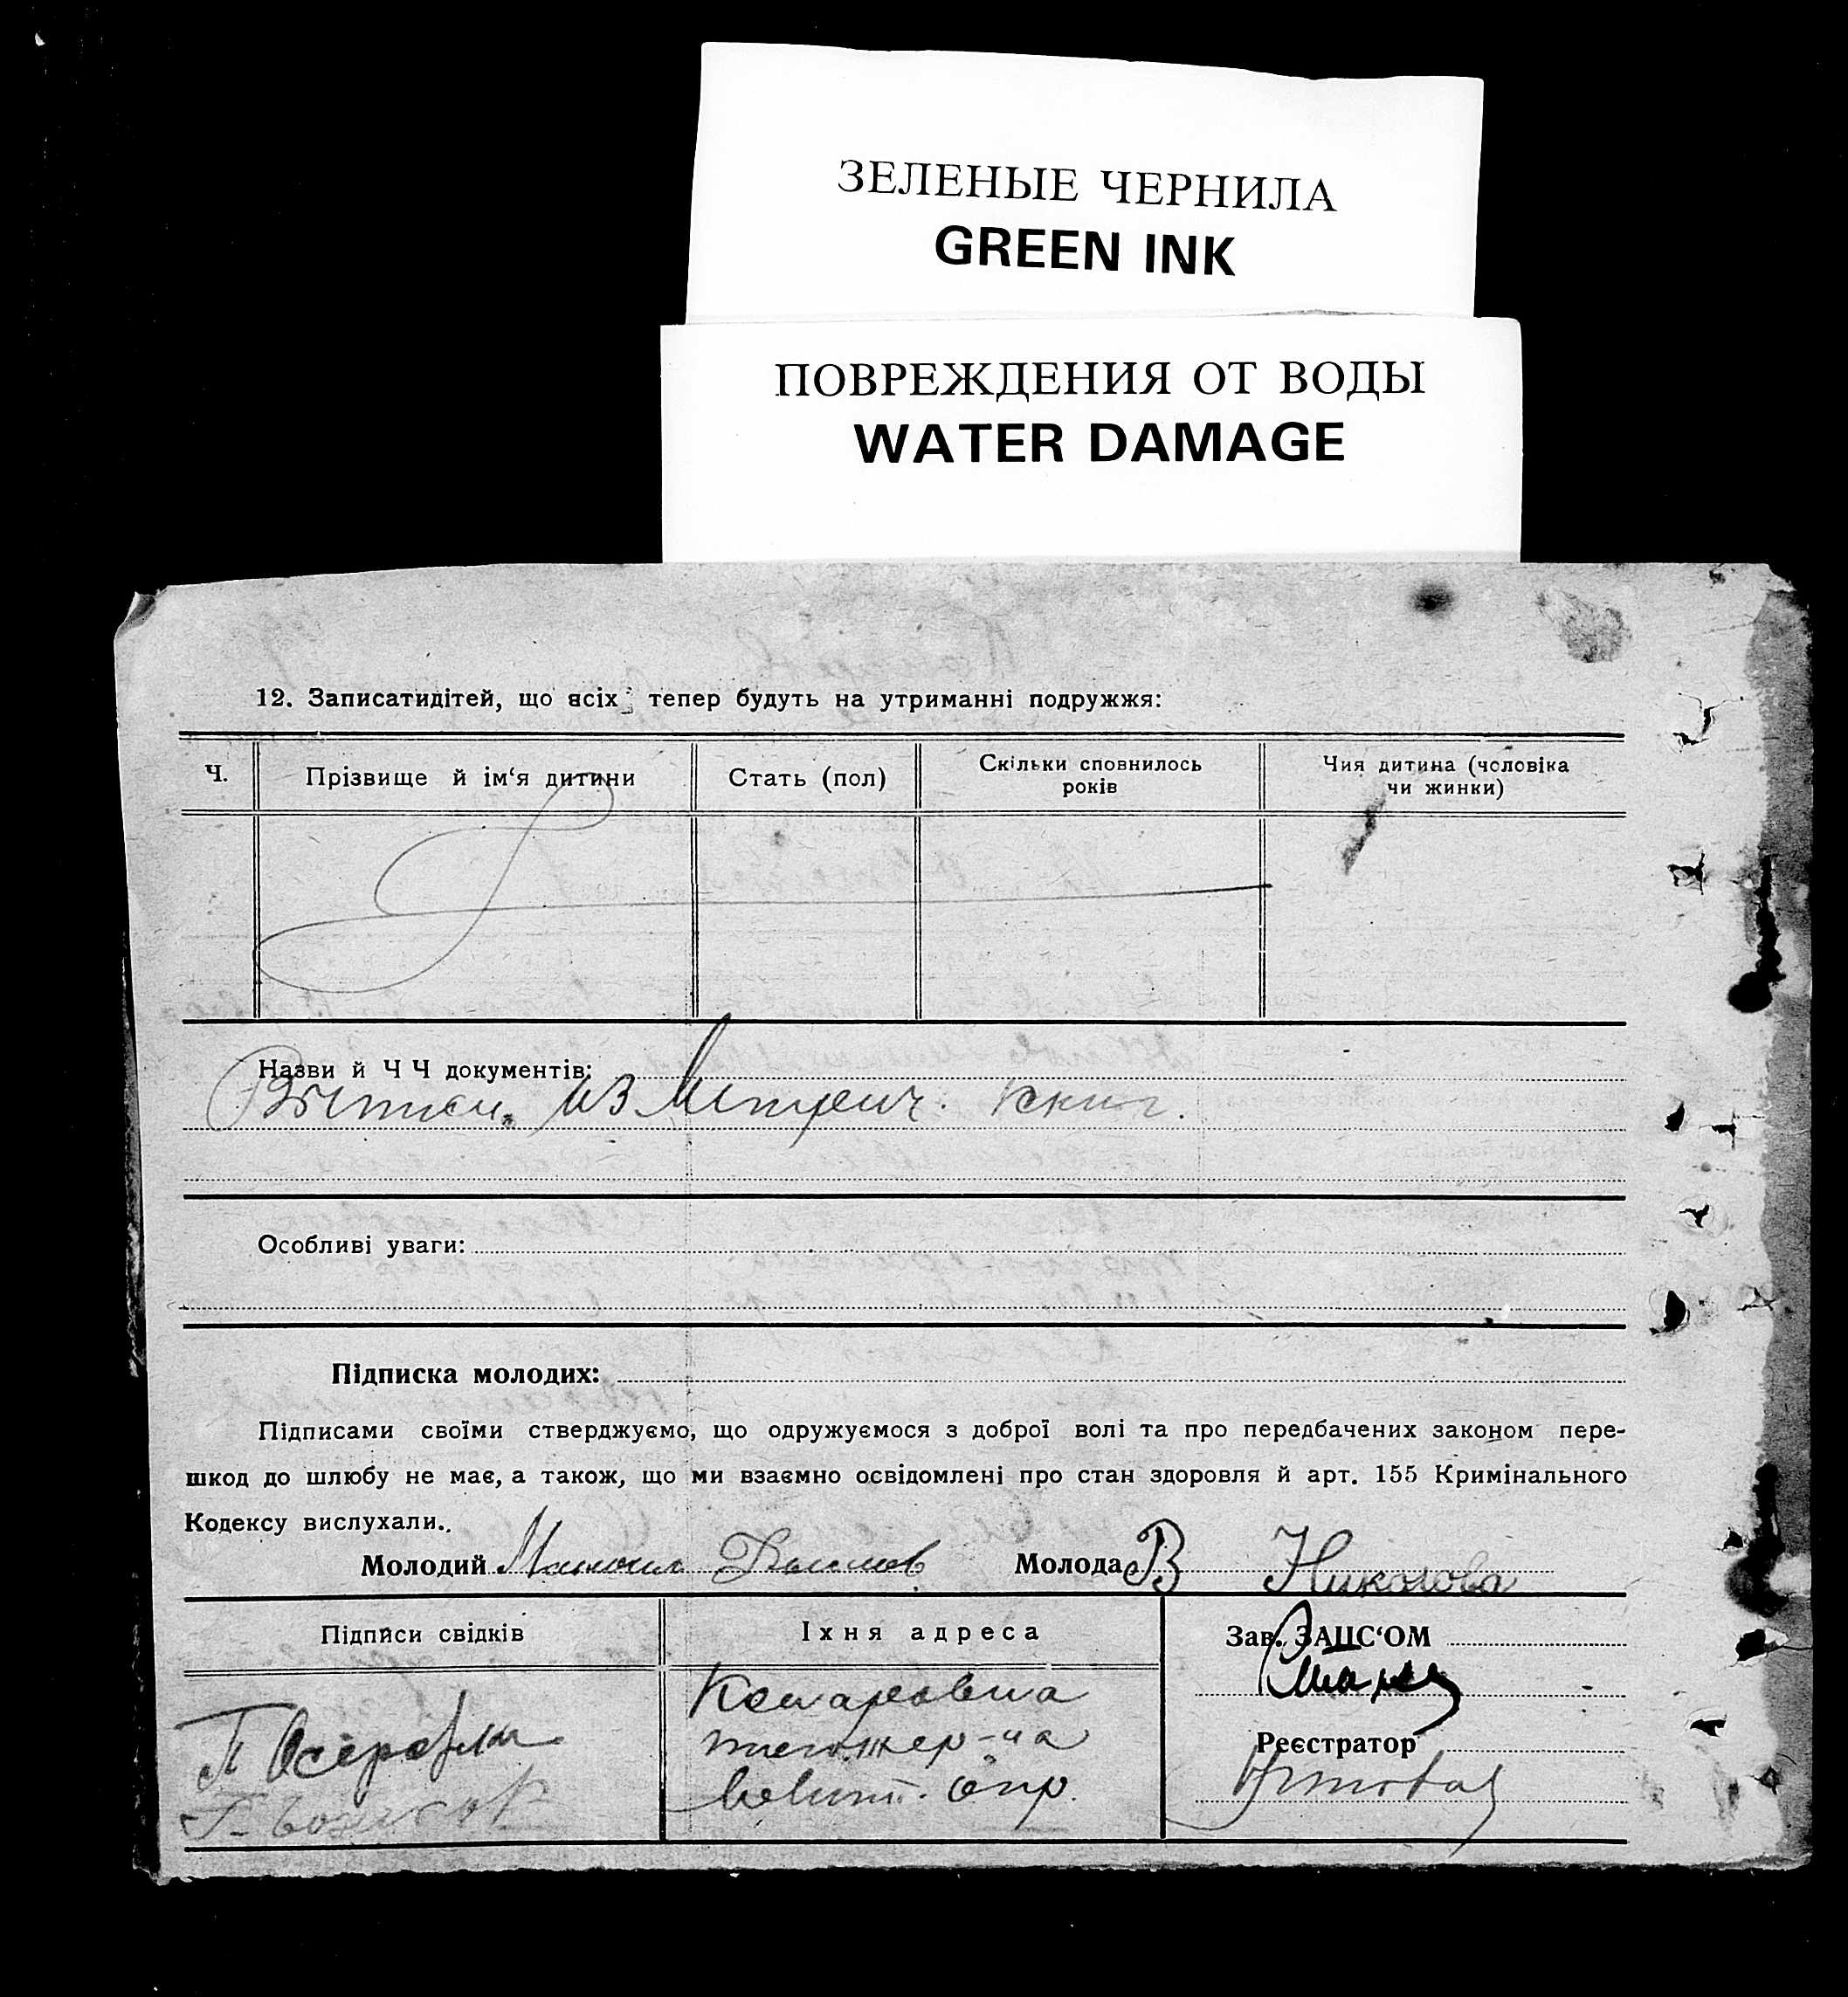 ЗЕЛЕНЫЕ ЧЕРНИЛА
GREEN INK
ПОВРЕЖДЕНИЯ ОТ ВОДЫ
WATER DAMAGE
12. Записатидітей, що всіх тепер будуть на утриманні подружжя:
Ч.
Прізвище й ім‘я дитини
Стать (пол)
Скільки сповнилось
років
Чия дитина (чоловіка
чи жинки)
Назви й Ч Ч документів:
из Метрич. книг.
Особливі уваги:
Підписка молодих:
Підписами своїми стверджуємо, що одружуємося з доброї волі та про передбачених законом пере-
шкод до шлюбу не має, а також, що ми взаємно освідомлені про стан здоровля й арт. 155 Кримінального
Кодексу вислухали.
Молодий
Молода В Николова
Підписи свідків
Їхня адреса
Зав. ЗАЦС‘ОМ
Реєстратор